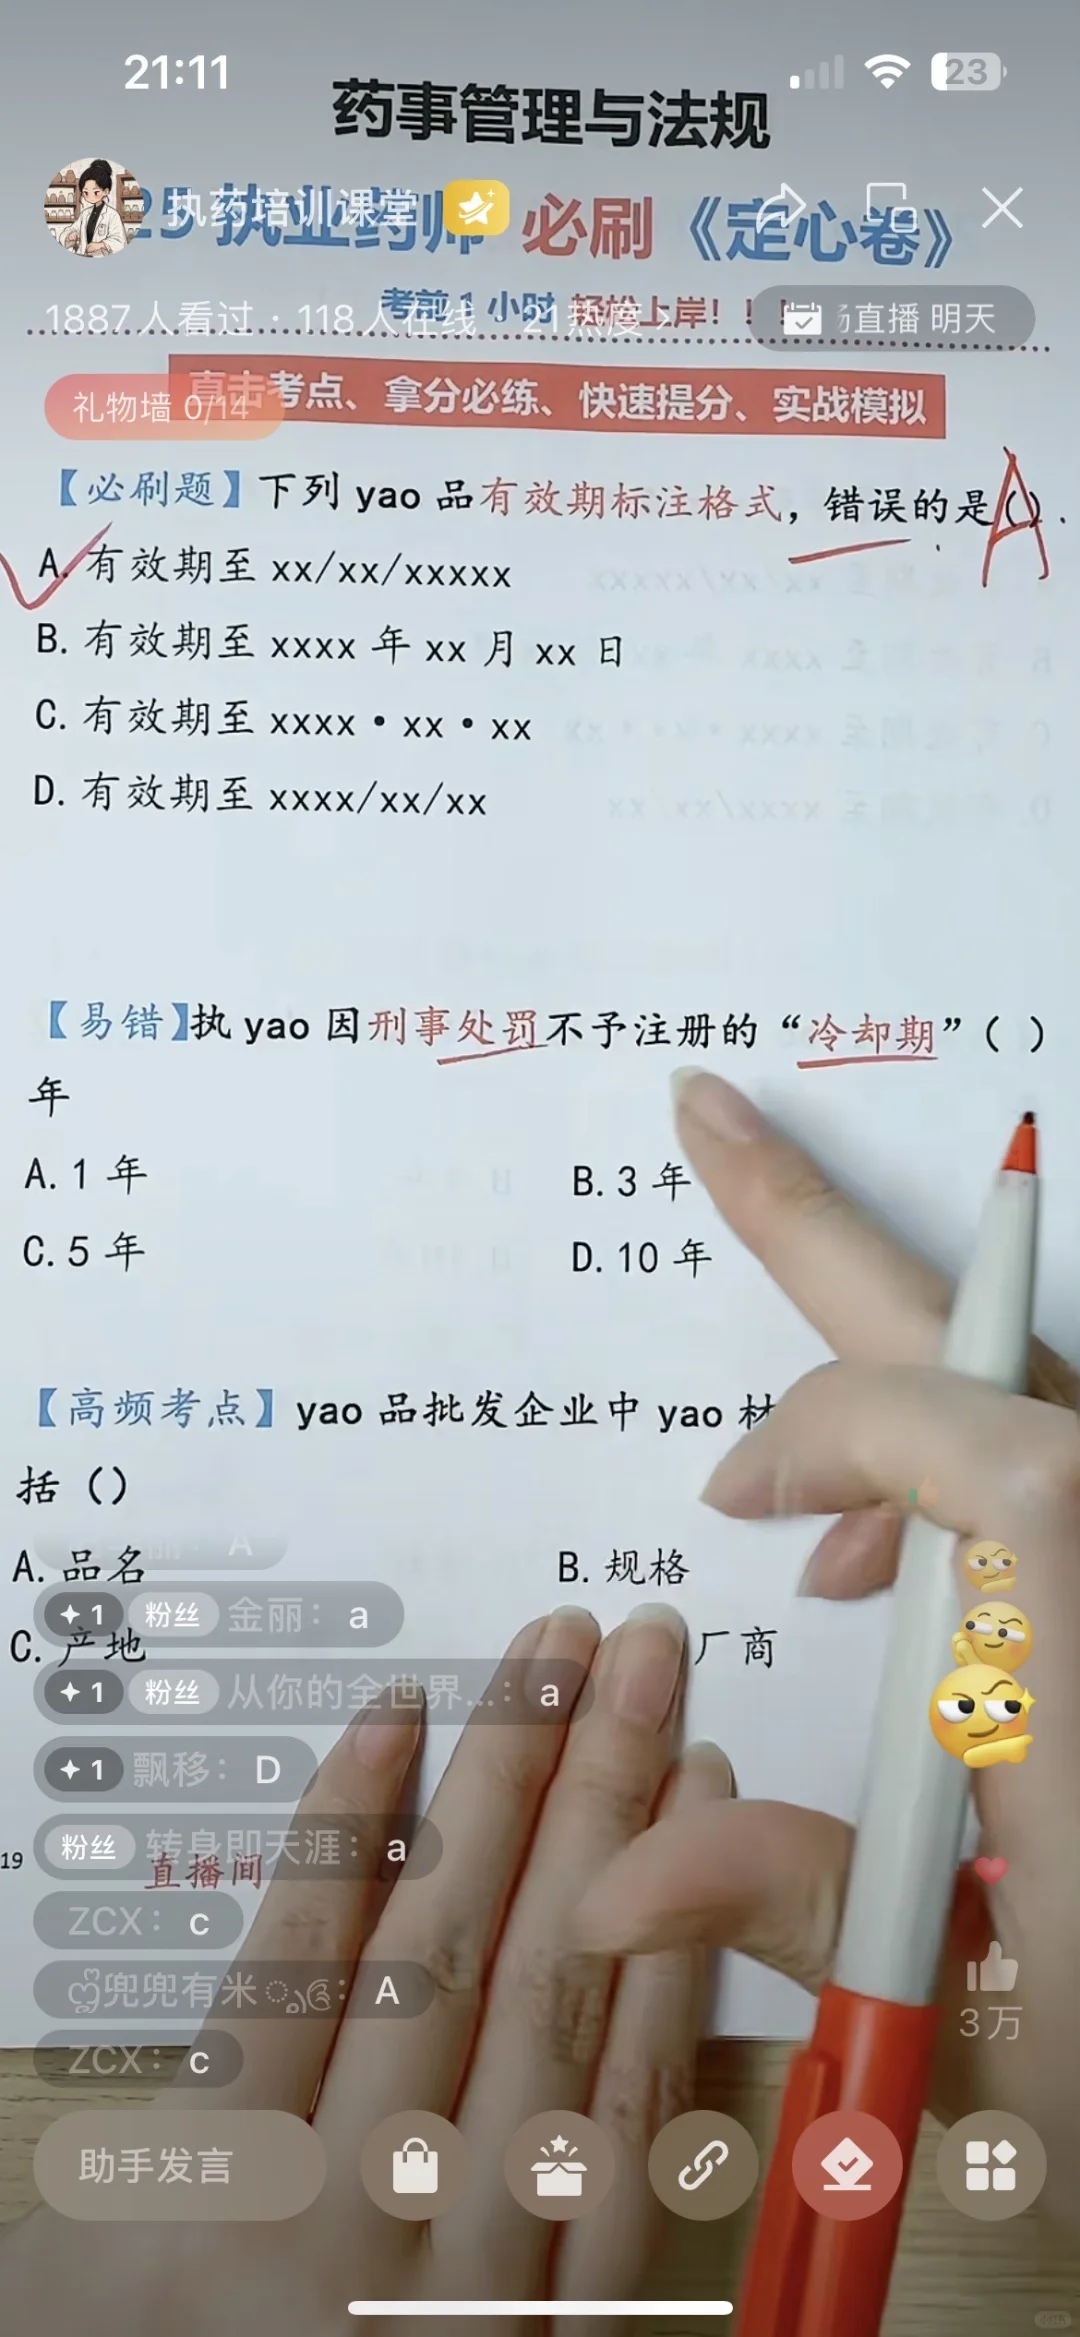 21:11
23
药事管理与法规
执药培训课堂
25 执业药师 必刷《定心卷》
考前 1 小时 轻松上岸！！！
1887 人看过 · 118 人在线 · 21 热度 >
场直播 明天
礼物墙 0/14
直击考点、拿分必练、快速提分、实战模拟
【必刷题】下列 yao 品有效期标注格式，错误的是（）.
A
A. 有效期至 xx/xx/xxxxx
B. 有效期至 xxxx 年 xx 月 xx 日
C. 有效期至 xxxx·xx·xx
D. 有效期至 xxxx/xx/xx
【易错】执 yao 因刑事处罚不予注册的“冷却期”（ ）
年
A. 1 年
B. 3 年
C. 5 年
D. 10 年
【高频考点】yao 品批发企业中 yao 材
括（）
A. 品名
B. 规格
C. 产地
厂商
丽： A
1 粉丝 金丽： a
1 粉丝 从你的全世界...： a
1 飘移： D
粉丝 转身即天涯： a
19
直播间
ZCX： c
兜兜有米： A
ZCX： c
3万
助手发言